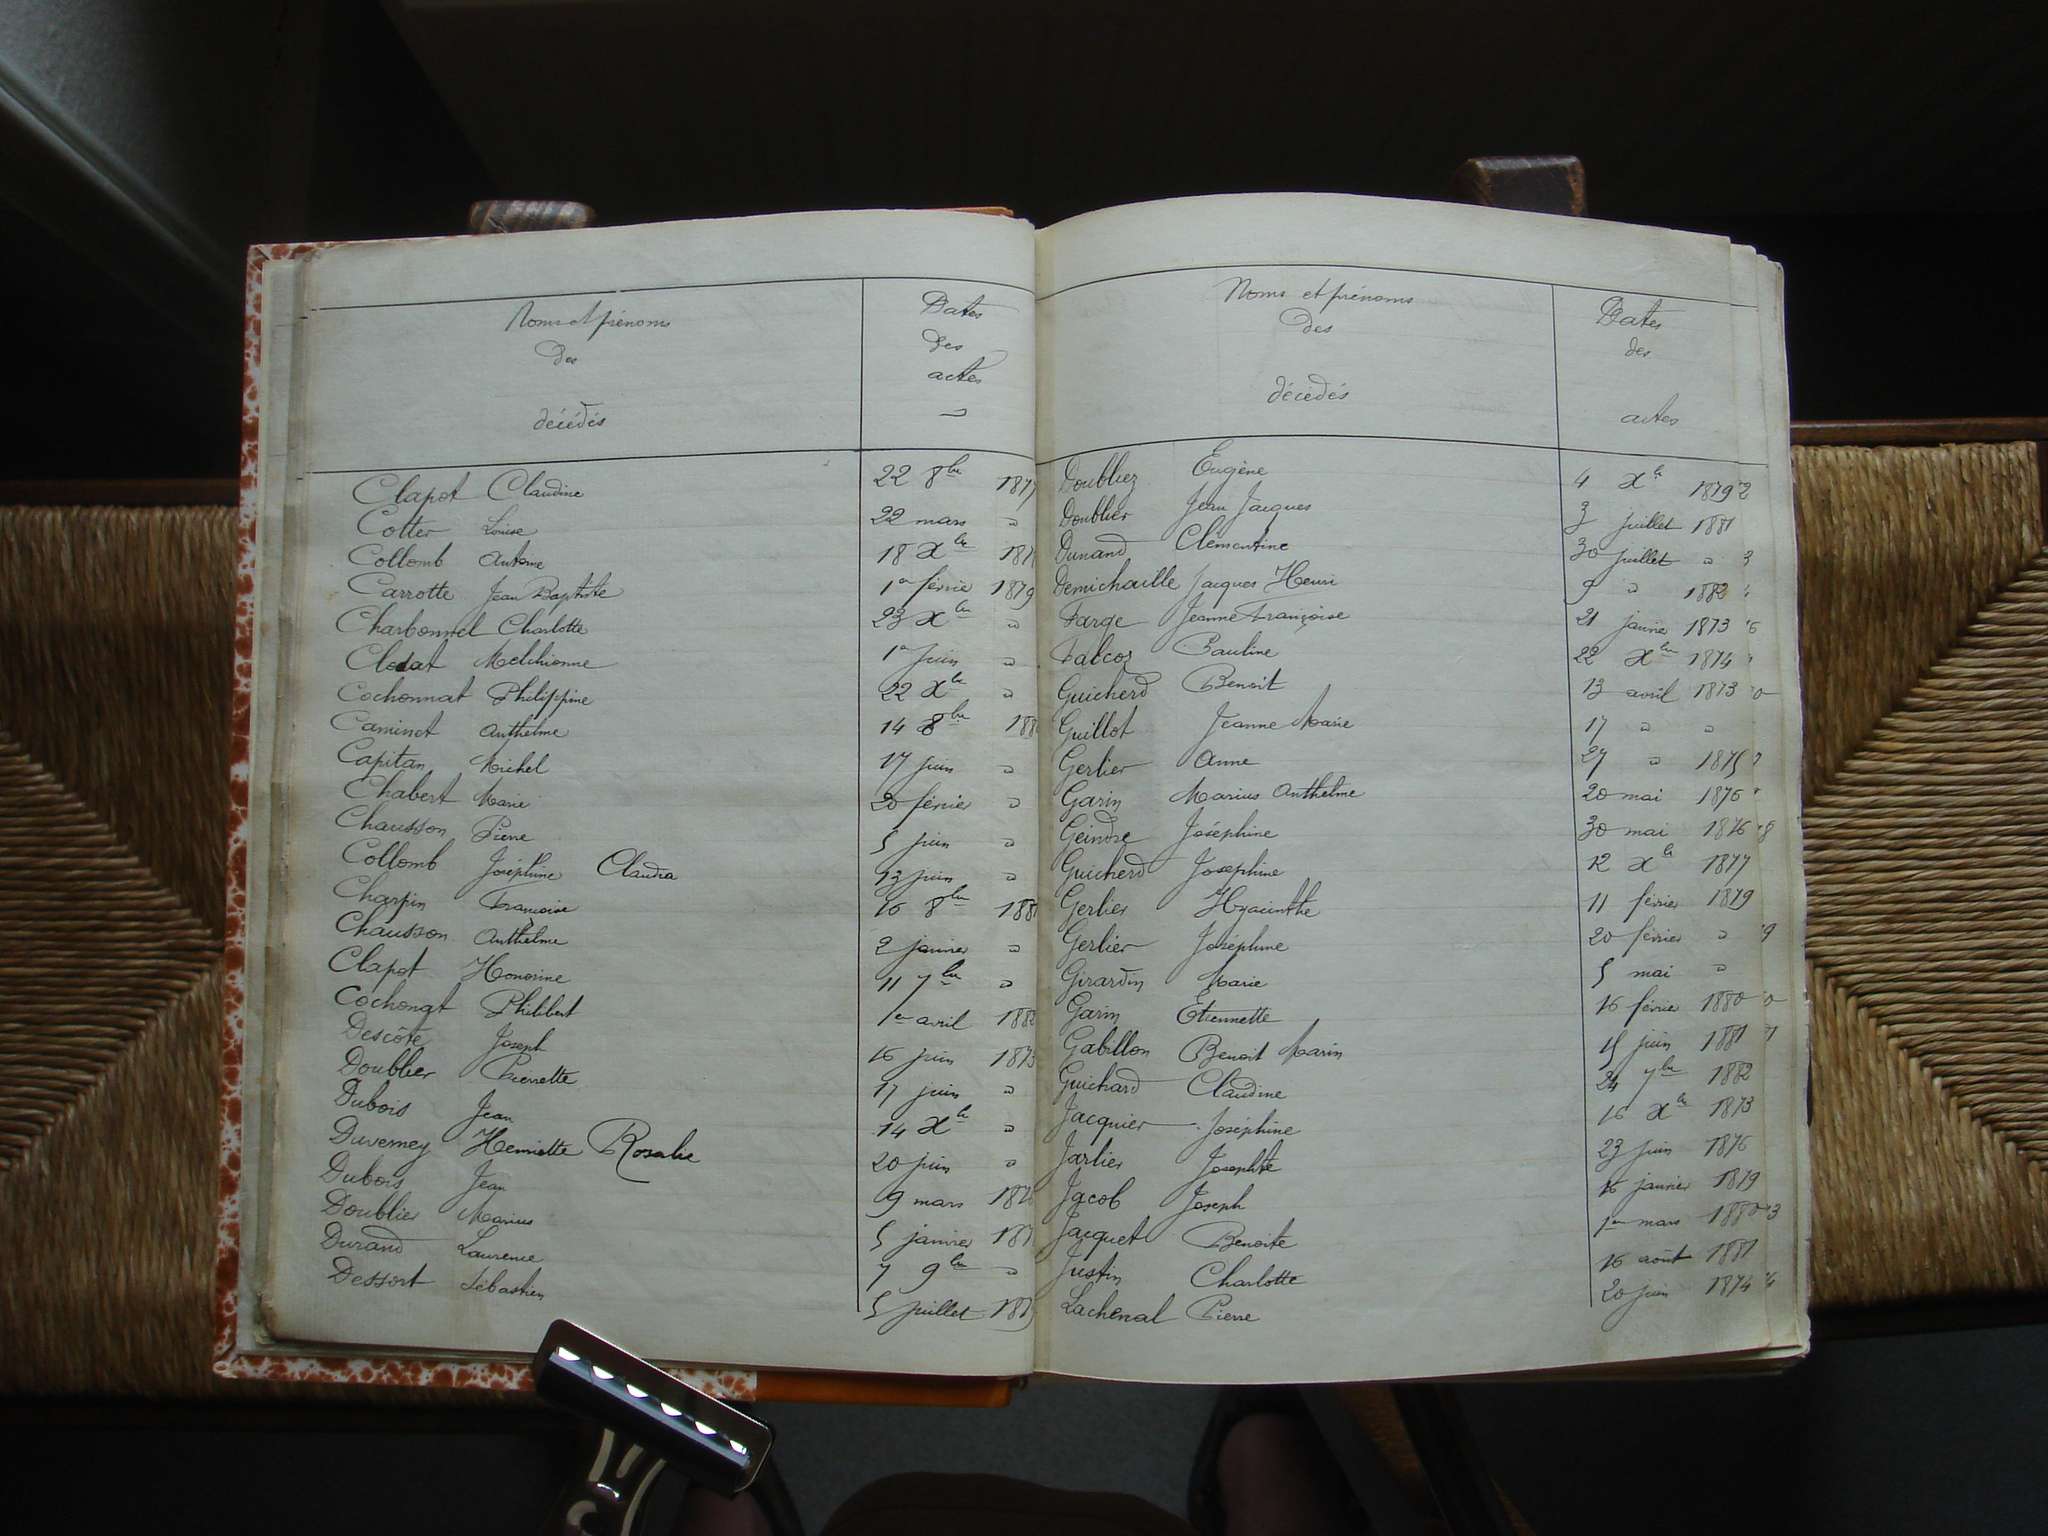 Noms et prénoms
des
décédés
Dates
des
actes
Clapot Claudine 22 8bre
Cotter Louise 22 mars "
Collomb Antoine 18 Xbre
Carrotte Jean Baptiste 1er février 1879
Charbonnel Charlotte 23 Xbre "
Clodat Melchionne 1er Juin "
Cochonnat Philippine 22 Xbre "
Caminet Anthelme 14 8bre
Capitan Michel 17 juin "
Chabert Marie 20 février "
Chausson Pierre 5 juin "
Collomb Joséphine Claudia 13 juin "
Charpin Françoise 16 8bre
Chausson Anthelme 2 janvier "
Clapot Honorine 11 7bre "
Cochongt Philibert 1er avril 1882
Descôte Joseph 16 juin 1873
Doublier Pierrette 17 juin "
Dubois Jean 14 Xbre "
Duverney Henriette Rosalie 20 juin "
Dubois Jean 9 mars
Doublier Marius 5 janvier
Durand Laurence 7 9bre "
Dessort Sébastien 5 juillet
Noms et prénoms
des
décédés
Dates
des
actes
Doubliez Eugène 4 Xbre 1879
Doublier Jean Jacques 3 juillet 1881
Dunand Clémentine 30 juillet "
Demichaille Jacques Henri 9 " 1882
Farge Jeanne Françoise 21 janvier 1873
Falcoz Pauline 22 Xbre 1874
Guicherd Benoit 13 avril 1873
Guillot Jeanne Marie 17 " "
Gerlier Anne 27 " 1875
Garin Marius Anthelme 20 mai 1876
Geindre Joséphine 30 mai 1876
Guicherd Joséphine 12 Xbre 1877
Gerlier Hyacinthe 11 février 1879
Gerlier Joséphine 20 février "
Girardin Marie 5 mai "
Garin Etiennette 16 février 1880
Gabillon Benoit Marin 15 juin 1881
Guichard Claudine 24 7bre 1882
Jacquier Joséphine 16 Xbre 1873
Jarlier Josephte 23 juin 1876
Jacob Joseph 16 janvier 1879
Jacquet Benoite 1er mars 1880
Justin Charlotte 16 août 1881
Lachenal Pierre 20 juin 1874